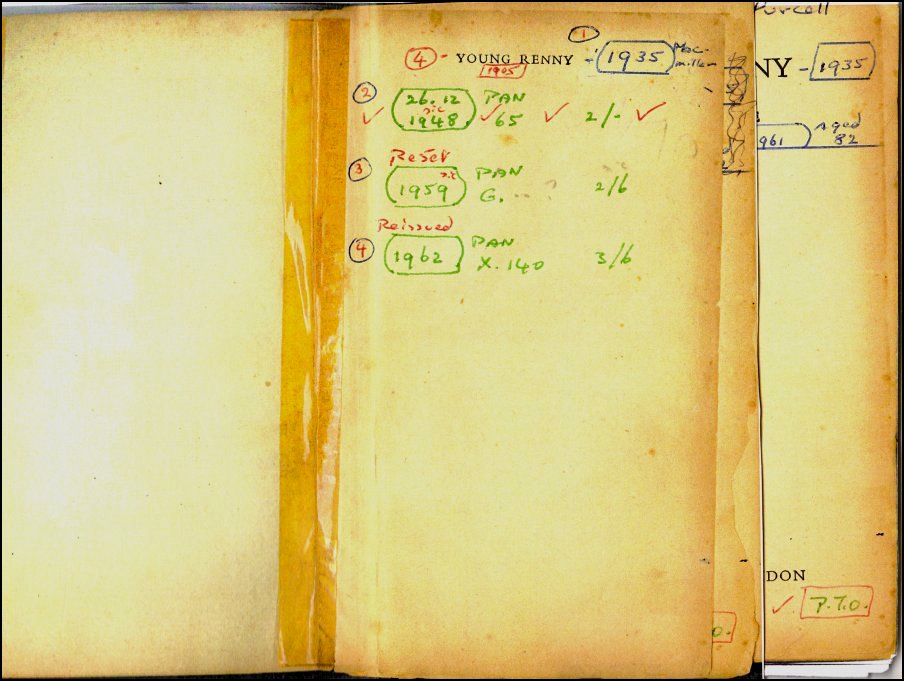 ④ - YOUNG RENNY ① - (1935) Mac-
millan
1905
② 26.12 PAN
sic
✓ 1948 ✓ 65 ✓ 2/- ✓
Reset
③ sic PAN
1959 G. ...? 2/6
Reissued
④ 1962 PAN
X. 140 3/6
Purcell
NY - 1935
961) Aged
82
DON
✓ P.T.O.
O.